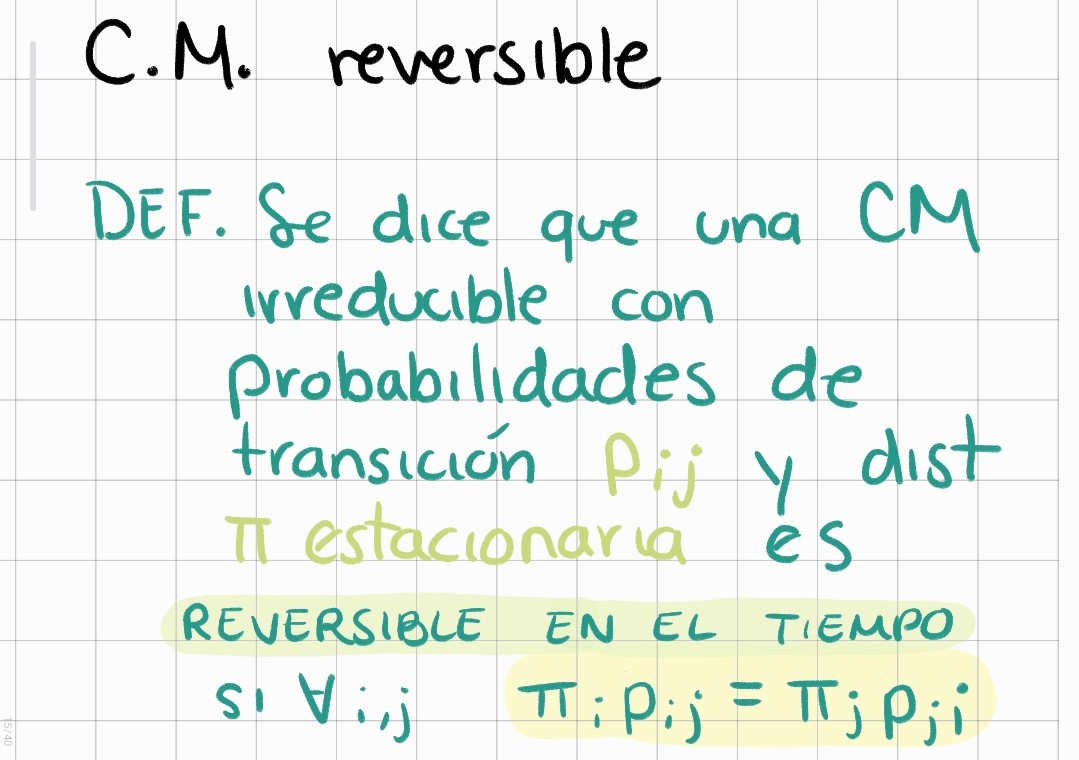 C.M. reversible
DEF. Se dice que una CM
irreducible con
probabilidades de
transición pij y dist
π estacionaria es
REVERSIBLE EN EL TIEMPO
si ∀i,j πi pij = πj pji
15/40